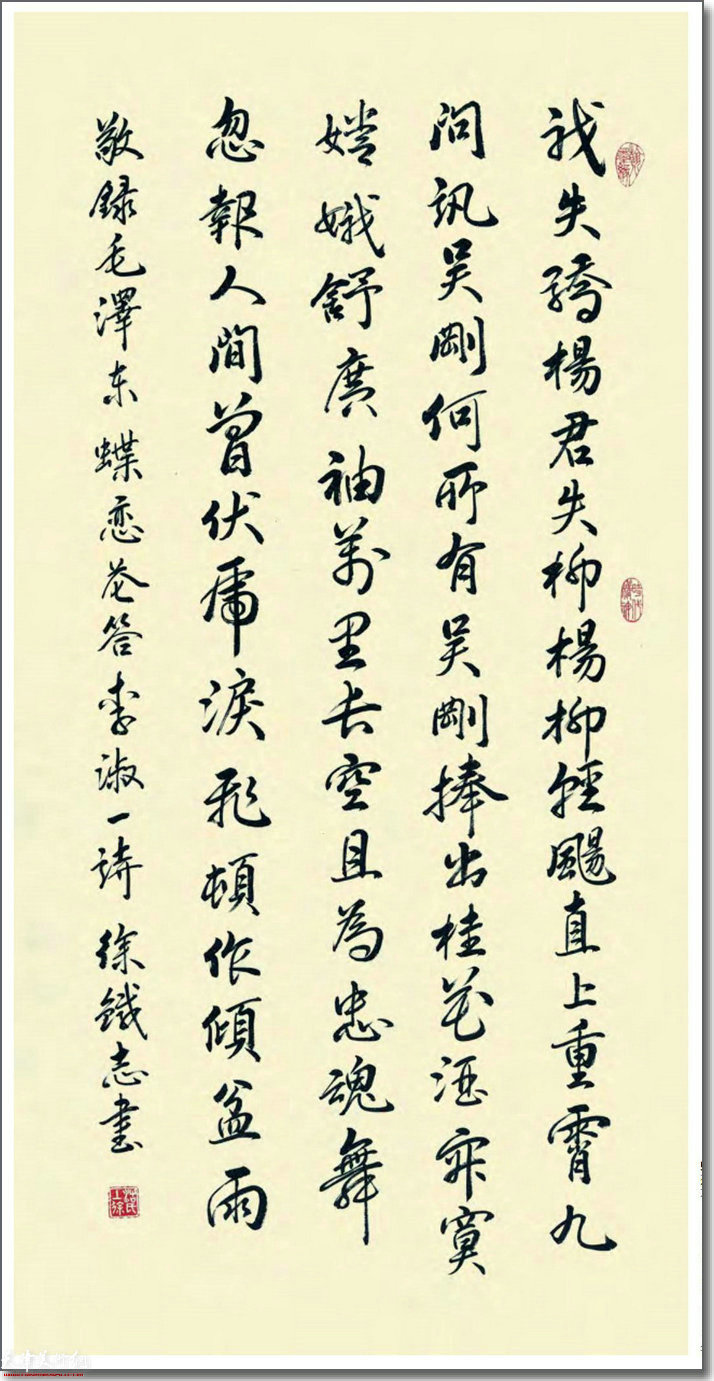 我失驕楊君失柳楊柳輕颺直上重霄九
問訊吴剛何所有吴剛捧出桂花酒寂寞
嫦娥舒廣袖萬里長空且為忠魂舞
忽報人間曾伏虎淚飛頓作傾盆雨
敬録毛澤东蝶恋花答李淑一詩 徐鐵志書
天津美术网